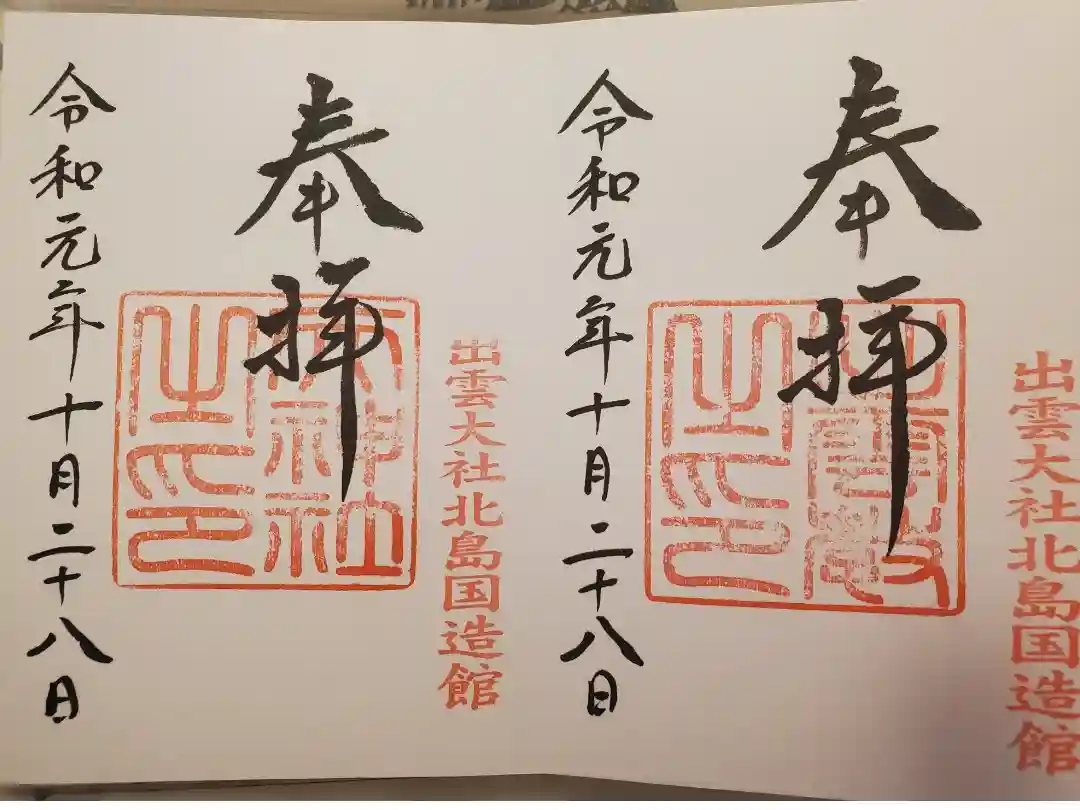 出雲大社北島国造館
奉拝
出雲教
之印
令和元年十月二十八日
出雲大社北島国造館
奉拝
天神社
之印
令和元年十月二十八日